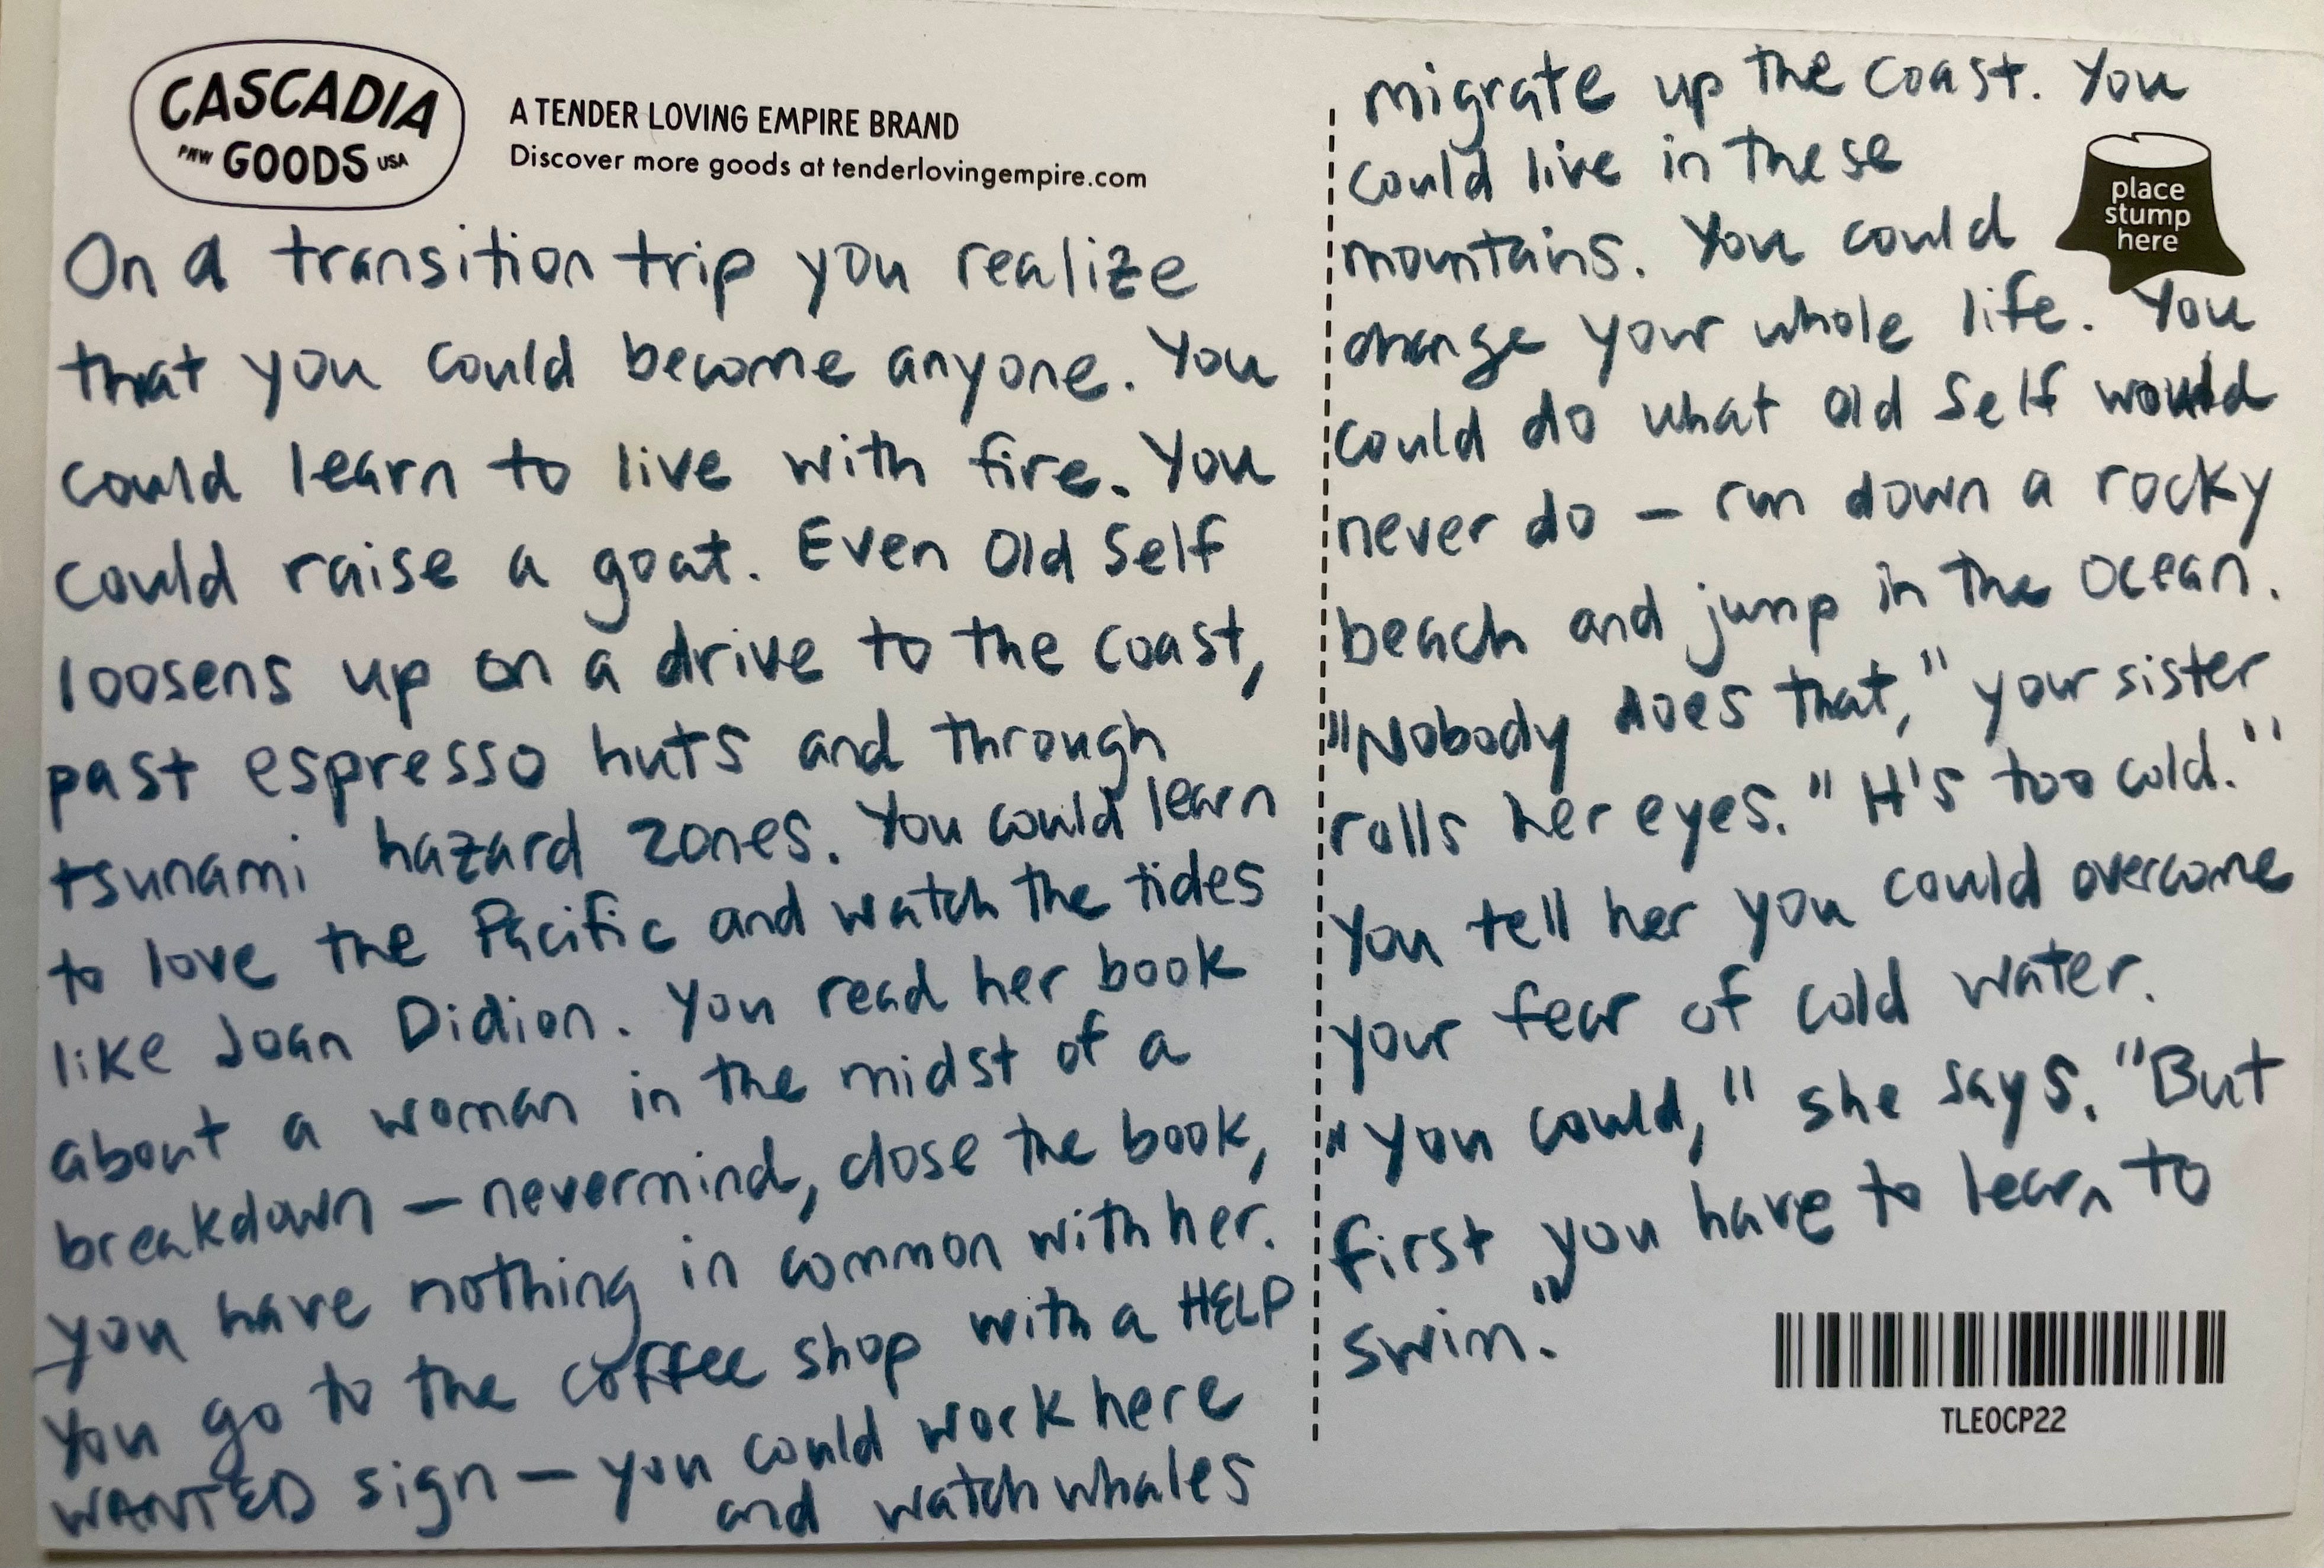 CASCADIA
PNW GOODS USA
A TENDER LOVING EMPIRE BRAND
Discover more goods at tenderlovingempire.com
On a transition trip you realize
that you could become anyone. You
could learn to live with fire. You
could raise a goat. Even Old Self
loosens up on a drive to the coast,
past espresso huts and through
tsunami hazard zones. You could learn
to love the Pacific and watch the tides
like Joan Didion. You read her book
about a woman in the midst of a
breakdown — nevermind, close the book,
you have nothing in common with her.
You go to the coffee shop with a HELP
WANTED sign — you could work here
and watch whales
migrate up the coast. You
could live in these
mountains. You could
change your whole life. You
could do what Old Self would
never do — run down a rocky
beach and jump in the ocean.
"Nobody does that," your sister
rolls her eyes. "It's too cold."
You tell her you could overcome
your fear of cold water.
"You could," she says. "But
first you have to learn to
swim."
place
stump
here
TLEOCP22